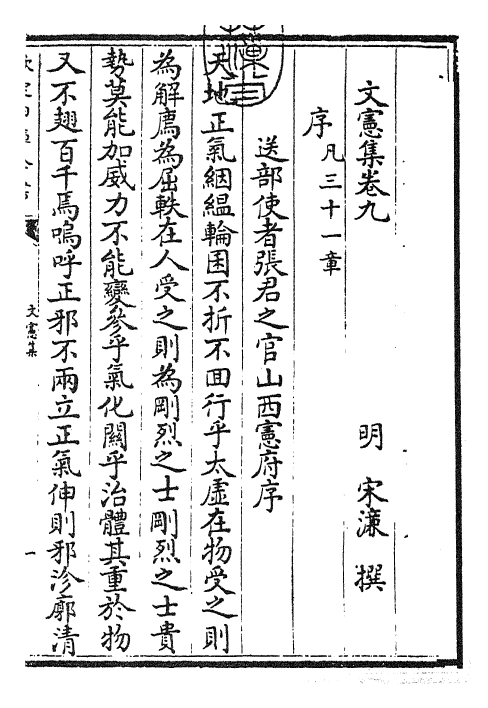 文憲集卷九
明 宋濂 撰
序凡三十一章
送部使者張君之官山西憲府序
天地正氣絪縕輪囷不折不回行乎太虛在物受之則
為解廌為屈軼在人受之則為剛烈之士剛烈之士貴
勢莫能加威力不能變參乎氣化關乎治體其重於物
又不翅百千焉嗚呼正邪不兩立正氣伸則邪沴廓清
文憲集
一